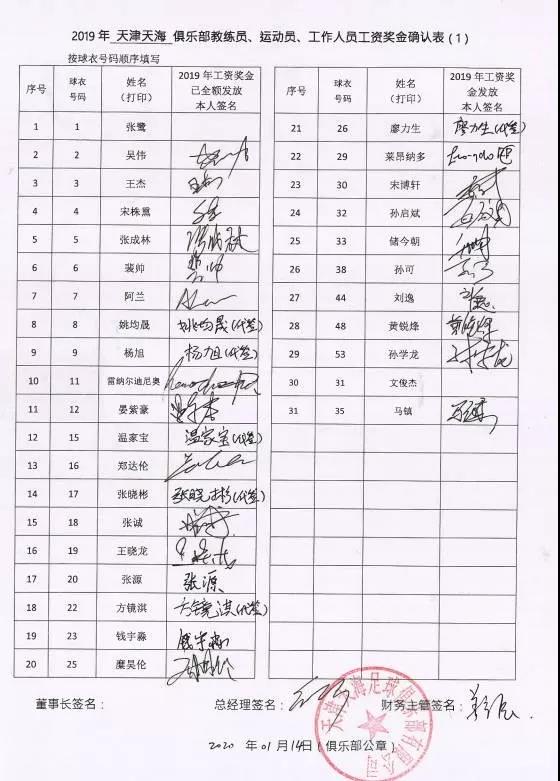 2019 年 天津天海 俱乐部教练员、运动员、工作人员工资奖金确认表（1）
按球衣号码顺序填写
序号 球衣号码 姓名（打印） 2019 年工资奖金已全额发放本人签名
1 1 张鹭
2 2 吴伟
3 3 王杰
4 4 宋株熏
5 5 张成林
6 6 裴帅
7 7 阿兰
8 8 姚均晟 姚均晟(代签)
9 9 杨旭 杨旭(代签)
10 11 雷纳尔迪尼奥
11 12 晏紫豪
12 15 温家宝 温家宝(代签)
13 16 郑达伦
14 17 张晓彬 张晓彬(代签)
15 18 张诚
16 19 王晓龙
17 20 张源 张源
18 22 方镜淇 方镜淇(代签)
19 23 钱宇淼 钱宇淼
20 25 糜昊伦
序号 球衣号码 姓名（打印） 2019 年工资奖金发放本人签名
21 26 廖力生 廖力生(代签)
22 29 莱昂纳多
23 30 宋博轩
24 32 孙启斌
25 33 储今朝
26 38 孙可
27 44 刘逸
28 48 黄锐烽
29 53 孙学龙
30 31 文俊杰
31 35 马镇
董事长签名： 总经理签名： 财务主管签名：
天津天海足球俱乐部有限公司
2020 年 01 月 14日（俱乐部公章）